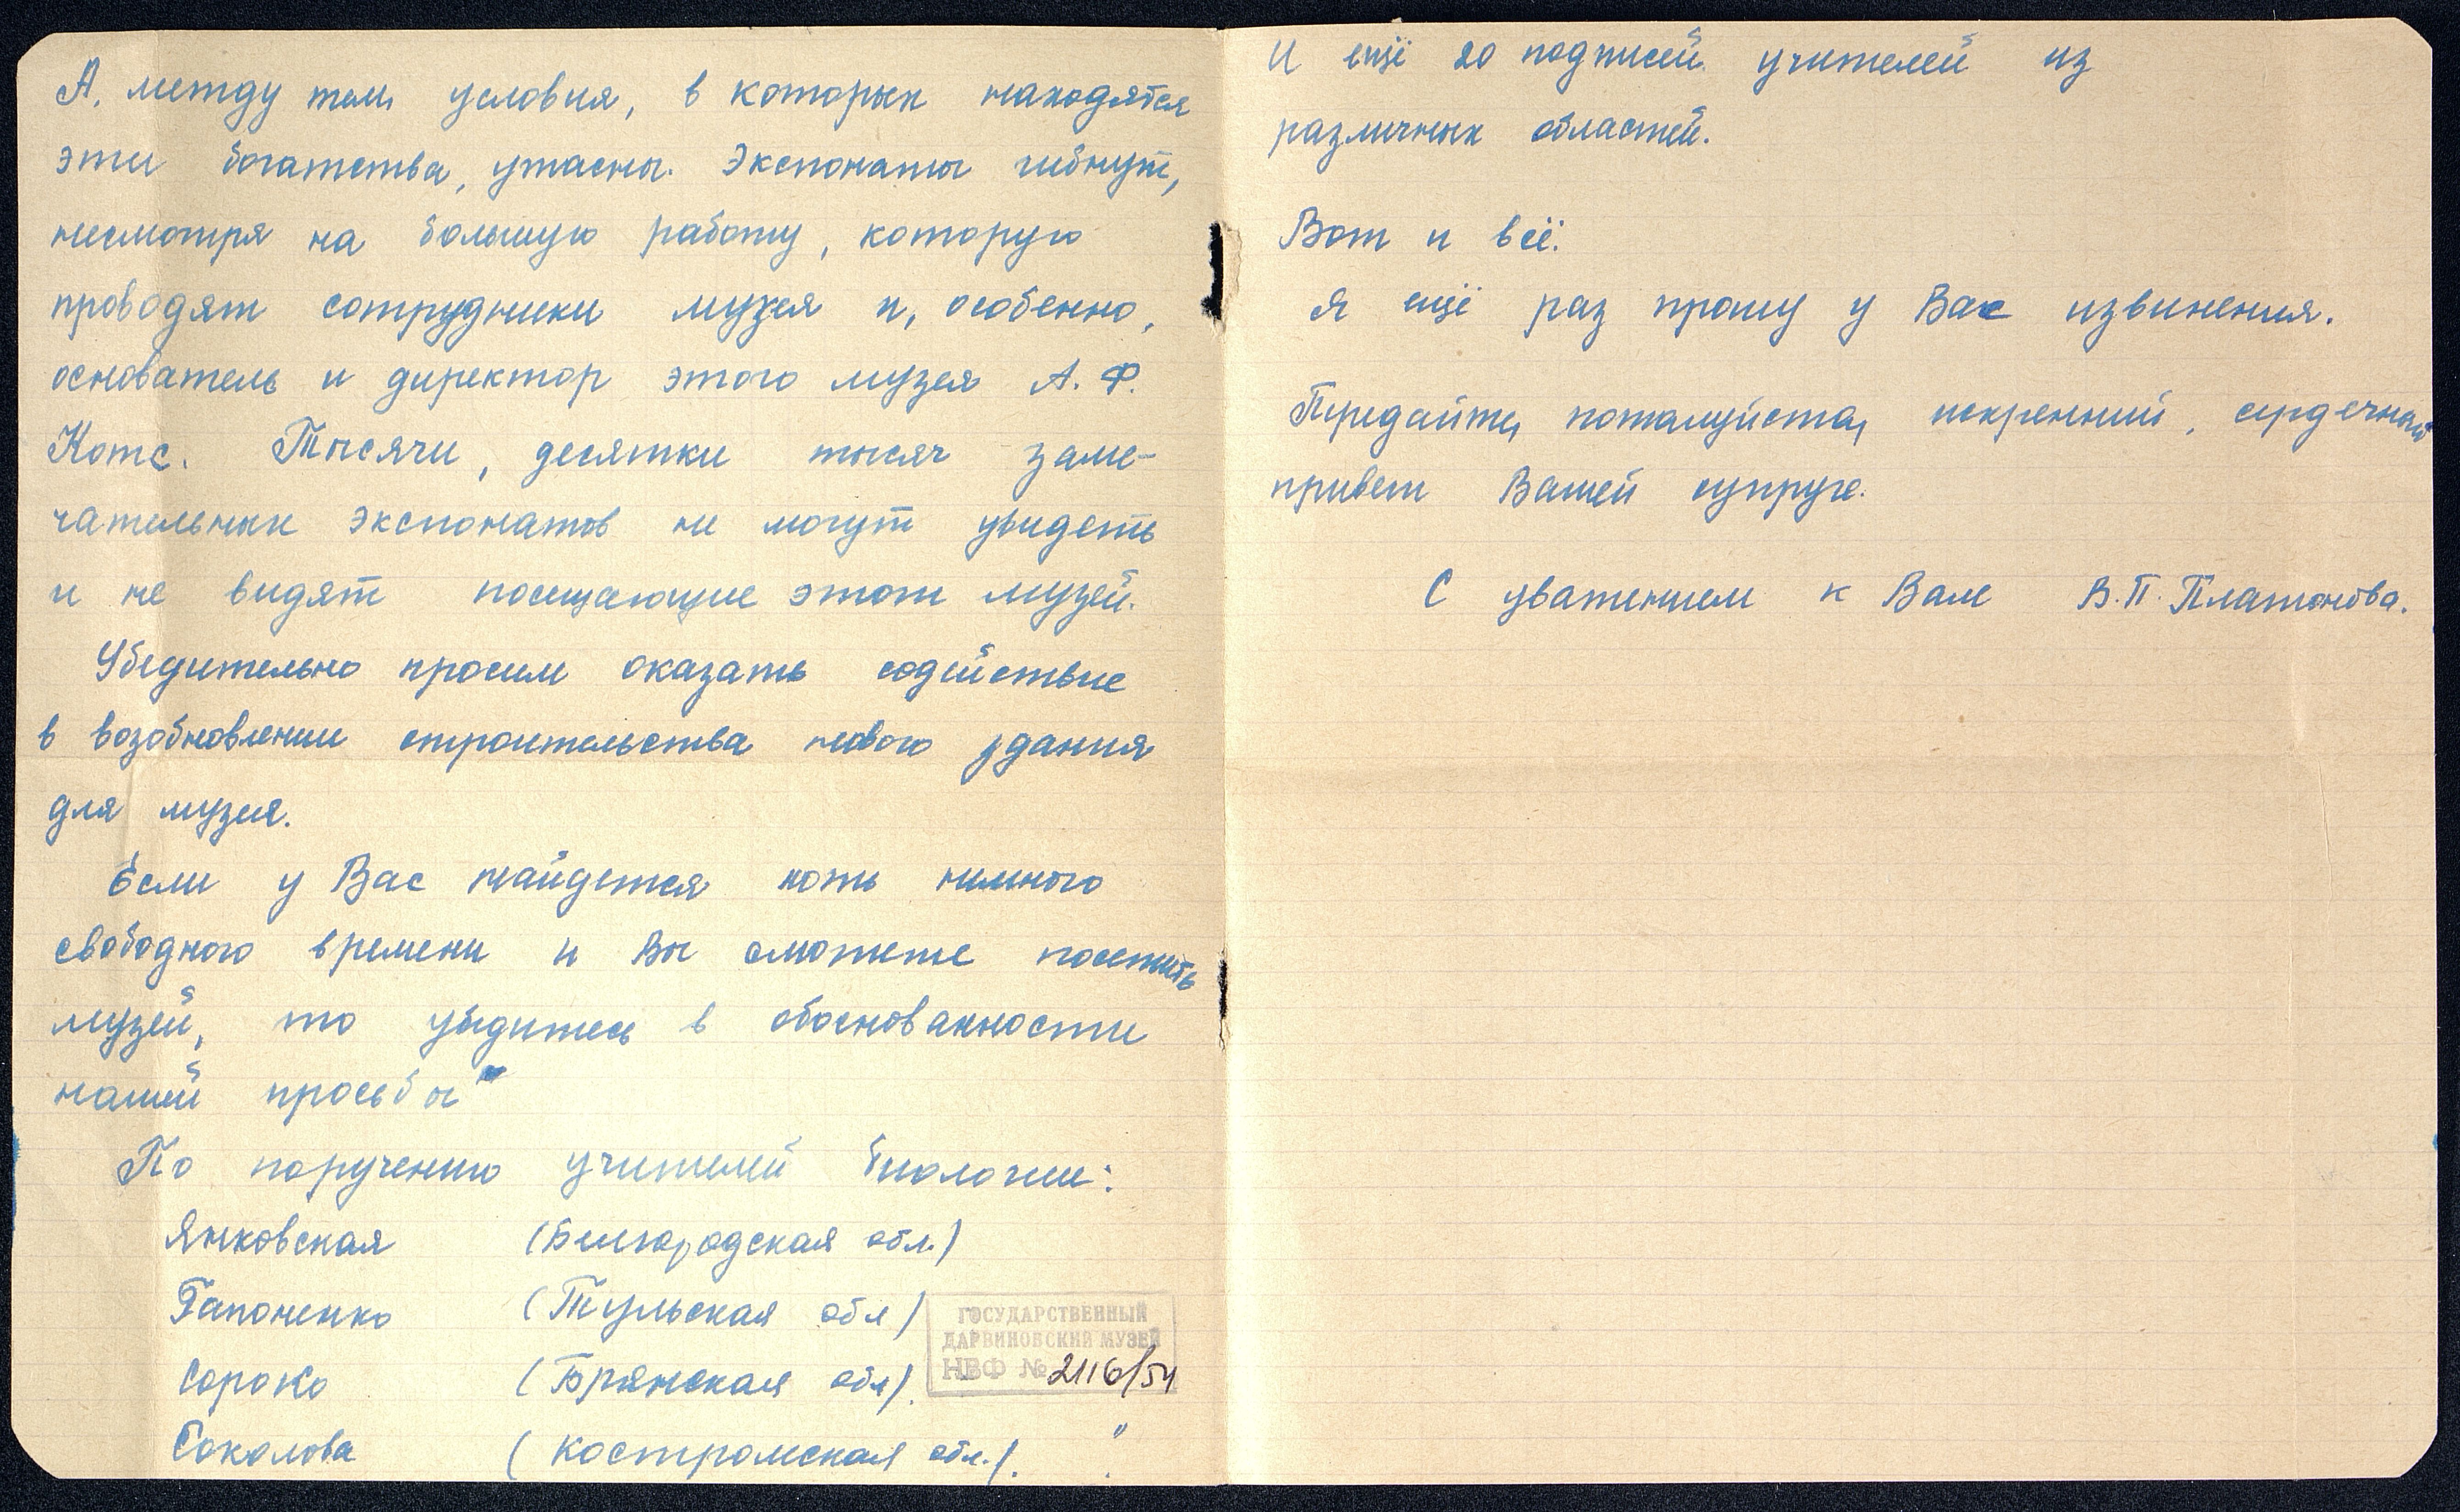 А, между тем, условия, в которых находятся
эти богатства, ужасны. Экспонаты гибнут,
несмотря на большую работу, которую
проводят сотрудники музея и, особенно,
основатель и директор этого музея А. Ф.
Котс. Тысячи, десятки тысяч заме-
чательных экспонатов не могут увидеть
и не видят посещающие этот музей.
Убедительно просим оказать содействие
в возобновлении строительства нового здания
для музея.
Если у Вас найдется хоть немного
свободного времени и Вы сможете посетить
музей, то убедитесь в обоснованности
нашей просьбы"
По поручению учителей биологии:
Янковская (Белгородская обл.)
Гапоненко (Тульская обл)
Сороко (Брянская обл).
Соколова (Костромская обл.). "
ГОСУДАРСТВЕННЫЙ
ДАРВИНОВСКИЙ МУЗЕЙ
НВФ № 2116/54
И ещё 20 подписей учителей из
различных областей.
Вот и всё.
Я ещё раз прошу у Вас извинения.
Передайте, пожалуйста, искренний, сердечный
привет Вашей супруге.
С уважением к Вам В.П. Платонова.